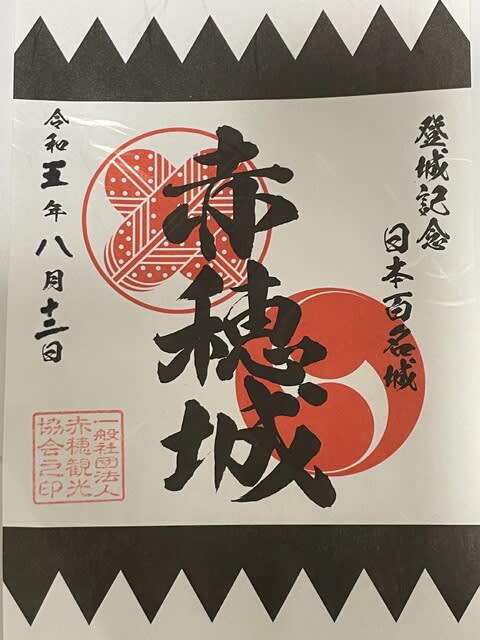 登城記念
日本百名城
赤穂城
令和五年八月十三日
一般社団法人
赤穂観光
協会之印